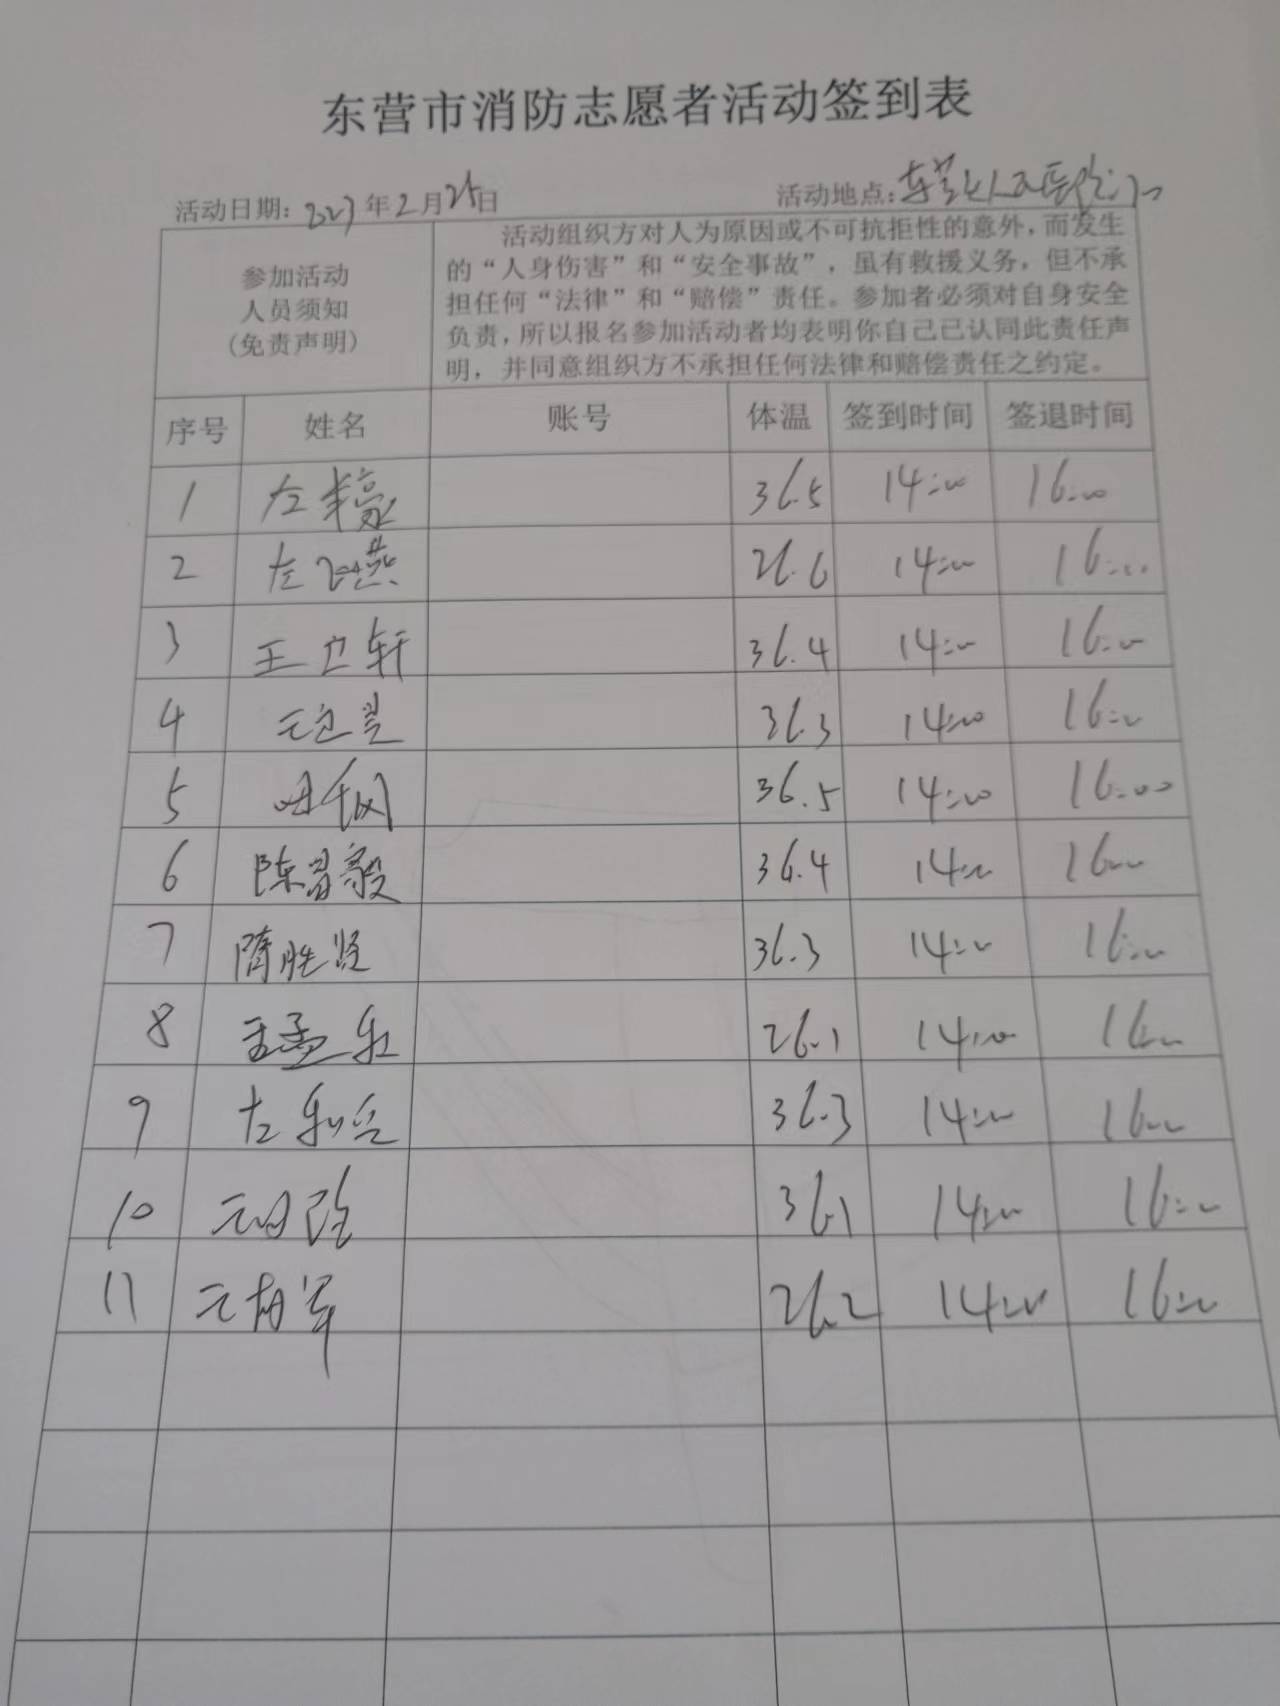 东营市消防志愿者活动签到表
活动日期: 2023年2月25日 活动地点:
参加活动
人员须知
(免责声明)
活动组织方对人为原因或不可抗拒性的意外,而发生
的“人身伤害”和“安全事故”,虽有救援义务,但不承
担任何“法律”和“赔偿”责任。参加者必须对自身安全
负责,所以报名参加活动者均表明你自己已认同此责任声
明,并同意组织方不承担任何法律和赔偿责任之约定。
序号 姓名 账号 体温 签到时间 签退时间
1 36.5 14:00 16:00
2 26.6 14:00 16:00
3 王卫轩 36.4 14:00 16:00
4 36.3 14:00 16:00
5 36.5 14:00 16:00
6 陈冒毅 36.4 14:00 16:00
7 隋胜贤 36.3 14:00 16:00
8 王孟乐 26.1 14:00 16:00
9 36.3 14:00 16:00
10 36.1 14:00 16:00
11 26.2 14:00 16:00